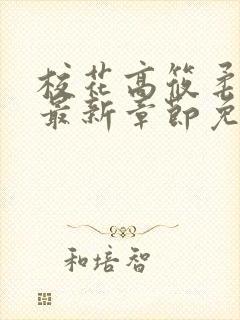 校花高筱柔
最新章節免
和培智